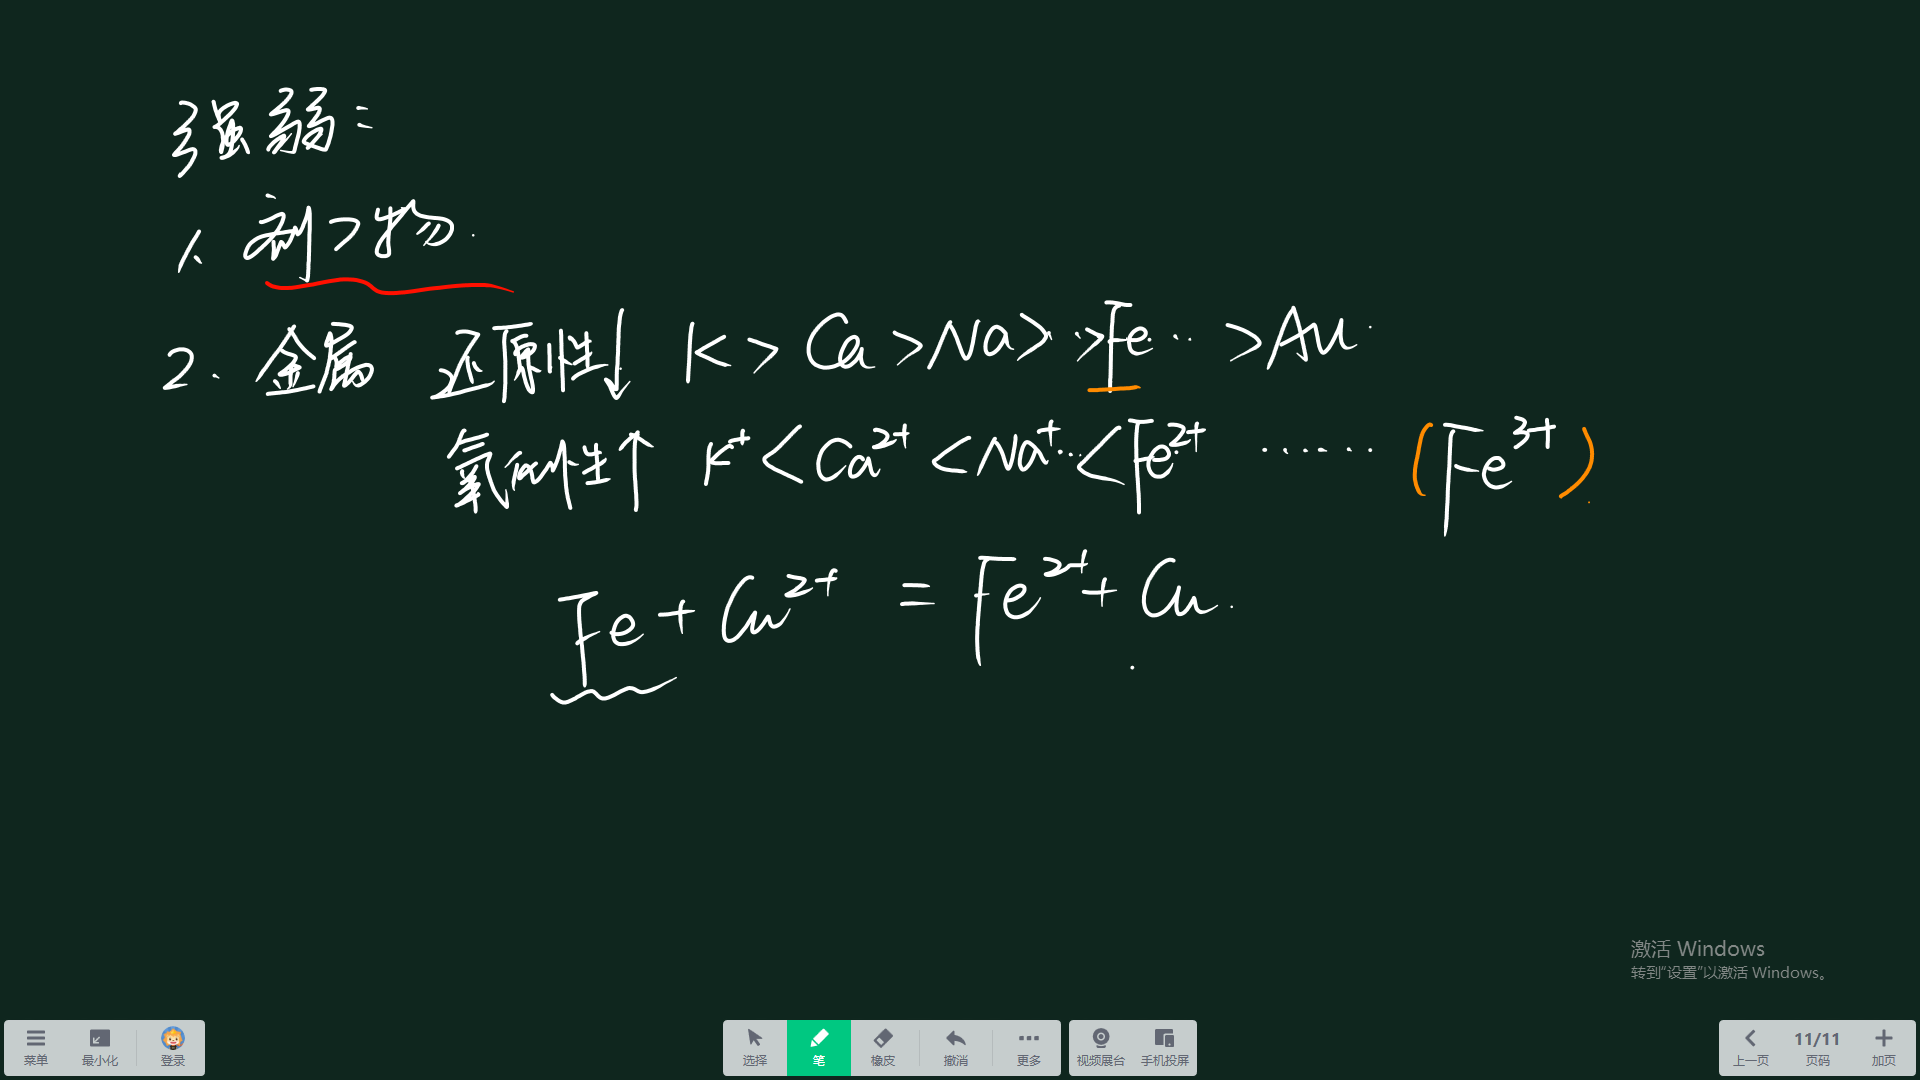 强弱：
1、剂>物.
2. 金属 还原性↓ K > Ca > Na > ··> Fe ··· > Au
氧化性↑ K⁺ < Ca²⁺ < Na⁺··· < Fe²⁺ ······ (Fe³⁺)
Fe + Cu²⁺ = Fe²⁺ + Cu.
激活 Windows
转到“设置”以激活 Windows。
菜单 最小化 登录 选择 笔 橡皮 撤消 更多 视频展台 手机投屏 上一页 11/11 页码 加页